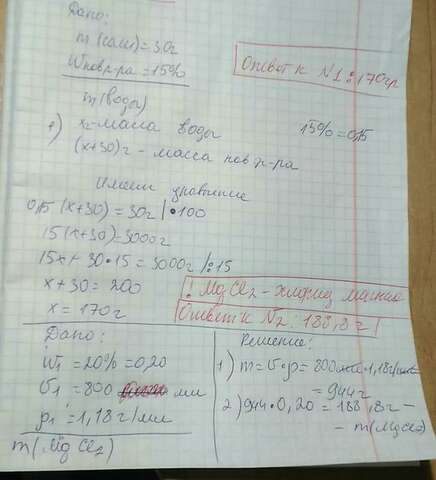 Дано:
m(соли)=30г
Wнов р-ра=15%
m(воды)
Ответ к №1: 170гр
1) x-масса воды
15%=0,15
(x+30)г - масса нов р-ра
Имеем уравнение
0,15(x+30)=30г |•100
15(x+30)=3000г
15x+30•15=3000г |:15
x+30=200
x=170г
! MgCl2 - хлорид магния
Ответ к №2: 188,8г!
Дано:
W1=20%=0,20
V1=800 мл
ρ1=1,18г/мл
m(MgCl2)
Решение:
1) m=V•ρ=800мл•1,18г/мл
=944г
2) 944•0,20=188,8г -
- m(MgCl2)